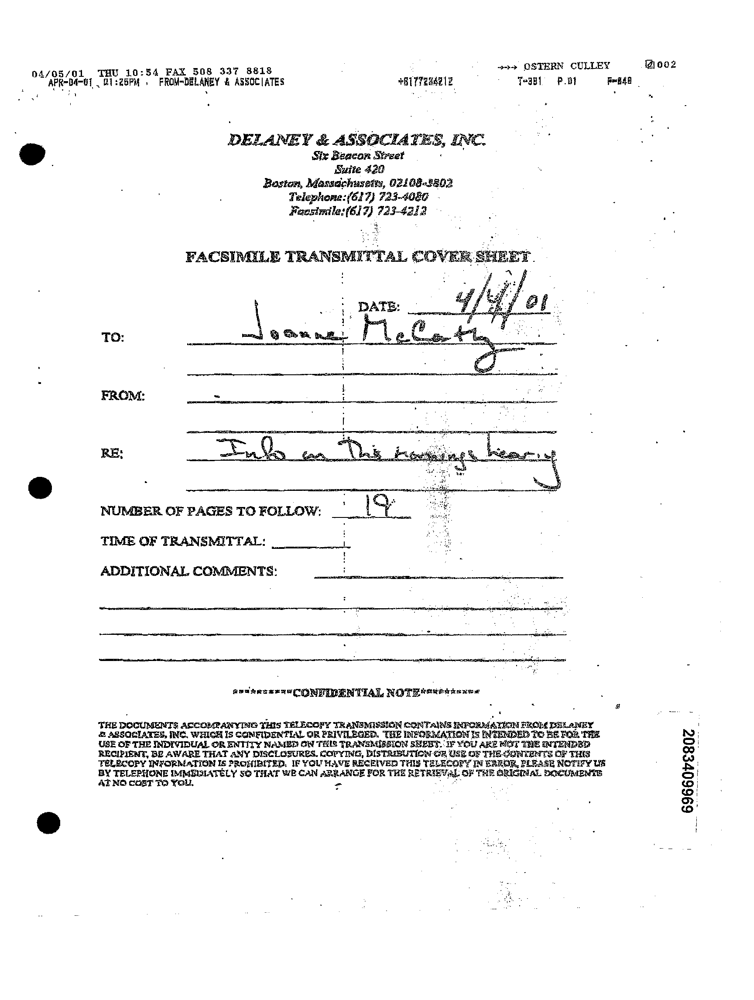 04/05/01 THU 10:54 FAX 508 337 8818 →→→ OSTERN CULLEY 002
APR-04-01 01:26PM FROM-DELANEY & ASSOCIATES +6177234212 T-381 P.01 F-848
DELANEY & ASSOCIATES, INC.
Six Beacon Street
Suite 420
Boston, Massachusetts, 02108-3802
Telephone:(617) 723-4080
Facsimile:(617) 723-4212
FACSIMILE TRANSMITTAL COVER SHEET
DATE: 4/4/01
TO: Joanne McCathy
FROM:
RE: Info on This mornings hearing
NUMBER OF PAGES TO FOLLOW: 19
TIME OF TRANSMITTAL:
ADDITIONAL COMMENTS:
**********CONFIDENTIAL NOTE**********
THE DOCUMENTS ACCOMPANYING THIS TELECOPY TRANSMISSION CONTAINS INFORMATION FROM DELANEY
& ASSOCIATES, INC. WHICH IS CONFIDENTIAL OR PRIVILEGED. THE INFORMATION IS INTENDED TO BE FOR THE
USE OF THE INDIVIDUAL OR ENTITY NAMED ON THIS TRANSMISSION SHEET. IF YOU ARE NOT THE INTENDED
RECIPIENT, BE AWARE THAT ANY DISCLOSURES, COPYING, DISTRIBUTION OR USE OF THE CONTENTS OF THIS
TELECOPY INFORMATION IS PROHIBITED. IF YOU HAVE RECEIVED THIS TELECOPY IN ERROR, PLEASE NOTIFY US
BY TELEPHONE IMMEDIATELY SO THAT WE CAN ARRANGE FOR THE RETRIEVAL OF THE ORIGINAL DOCUMENTS
AT NO COST TO YOU.
2083409969